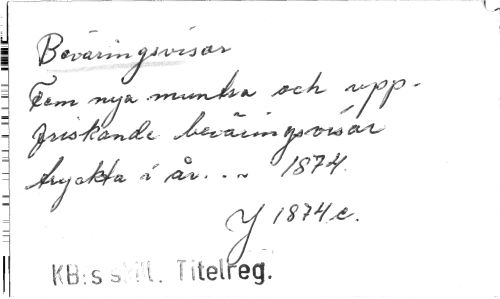 Beväringsvisor
Fem nya muntra och upp-
friskande beväringsvisor
tryckta i år... 1874.
Y 1874 c.
KB:s s Titelreg.